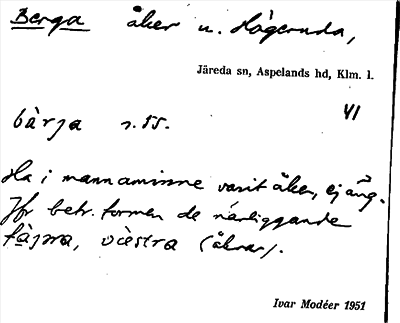 Berga åker u. Högeruda,
Järeda sn, Aspelands hd, Klm. l.
41
bàrja s. 55.
Ha i mannaminne varit åker, ej äng.
Jfr betr. formen de närliggande
tàjna, vèstra (åkrar).
Ivar Modéer 1951